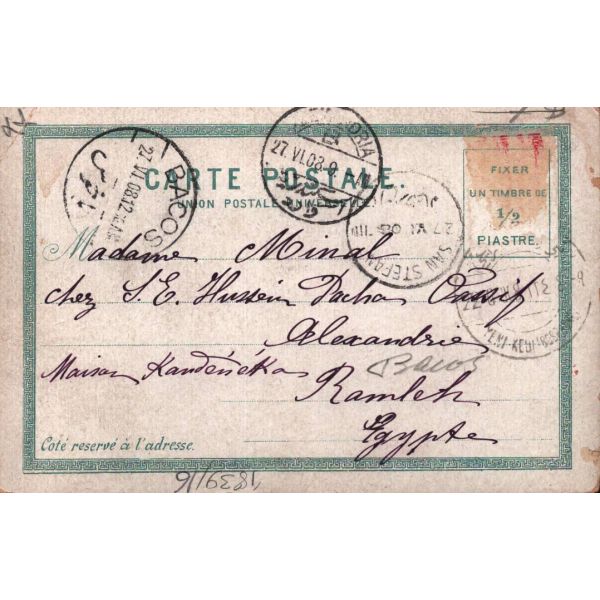 CARTE POSTALE.
UNION POSTALE UNIVERSELLE.
FIXER
UN TIMBRE DE
1/2
PIASTRE.
BACOS
27 VI 08
27. VI. 08
SAN STEFANO
27 VI 08
Madame Minal
chez S. E. Hussein Pacha Vassif
Alexandrie
Bacos
Maison Kandénéka
Ramleh
Egypte
Coté reservé à l'adresse.